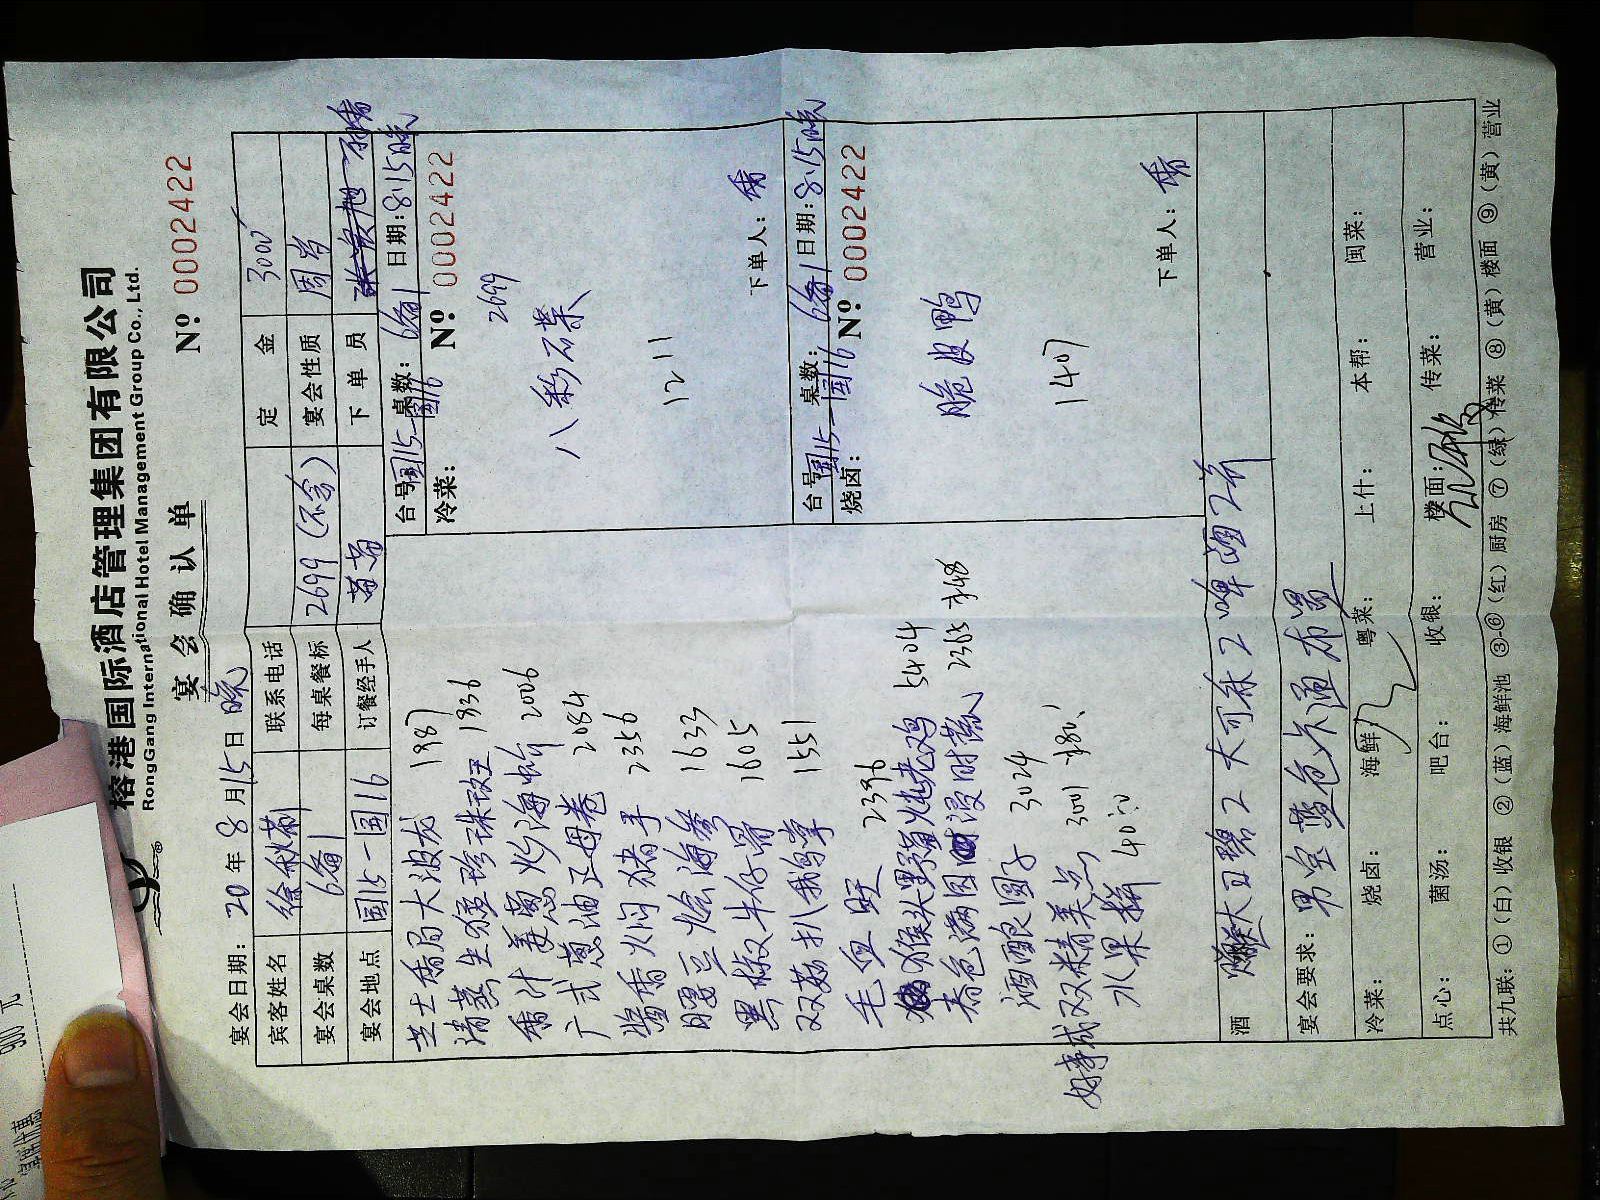 榕港国际酒店管理集团有限公司
RongGang International Hotel Management Group Co., Ltd.
宴会确认单
Nº: 0002422
宴会日期: 20 年 8 月 15 日 晚
宾客姓名 徐秋菊 联系电话 定金 3000
宴会桌数 6备1 每桌餐标 2699 (不含) 宴会性质 周岁
宴会地点 国15-国16 订餐经手人 苗苗 下单员
芝士香焗大波龙 1987
清蒸生猛珍珠斑 1936
香汁姜葱炒海蚧 2006
广式葱油正母卷 2084
酱香焖猪手 2356
腰豆烩海参 1633
黑椒牛仔骨 1605
双菇扒鹅掌 1551
毛血旺 2396
猴头野猫炖老鸡 5404
春色满园浸时蔬 2365
酒酿圆子 3024
好事成双双精美点 3001
水果拼 40:0
台号: 国15-国16 桌数: 6备1 日期: 8.15晚
冷菜: Nº: 0002422
2699
八彩石碟
1211
下单人: 香
台号: 国15-国16 桌数: 6备1 日期: 8.15晚
烧卤: Nº: 0002422
脆皮鸭
1407
下单人: 香
酒 赠大百碧2 大可乐2 啤酒2箱
宴会要求: 男宝 蓝色卡通布置
冷菜: 烧卤: 海鲜: 粤菜: 上什: 本帮: 闽菜:
点心: 菌汤: 吧台: 收银: 楼面: 传菜: 营业:
共九联: ①(白)收银 ②(蓝)海鲜池 ③-⑥(红)厨房 ⑦(绿)传菜 ⑧(黄)楼面 ⑨(黄)营业
900 元